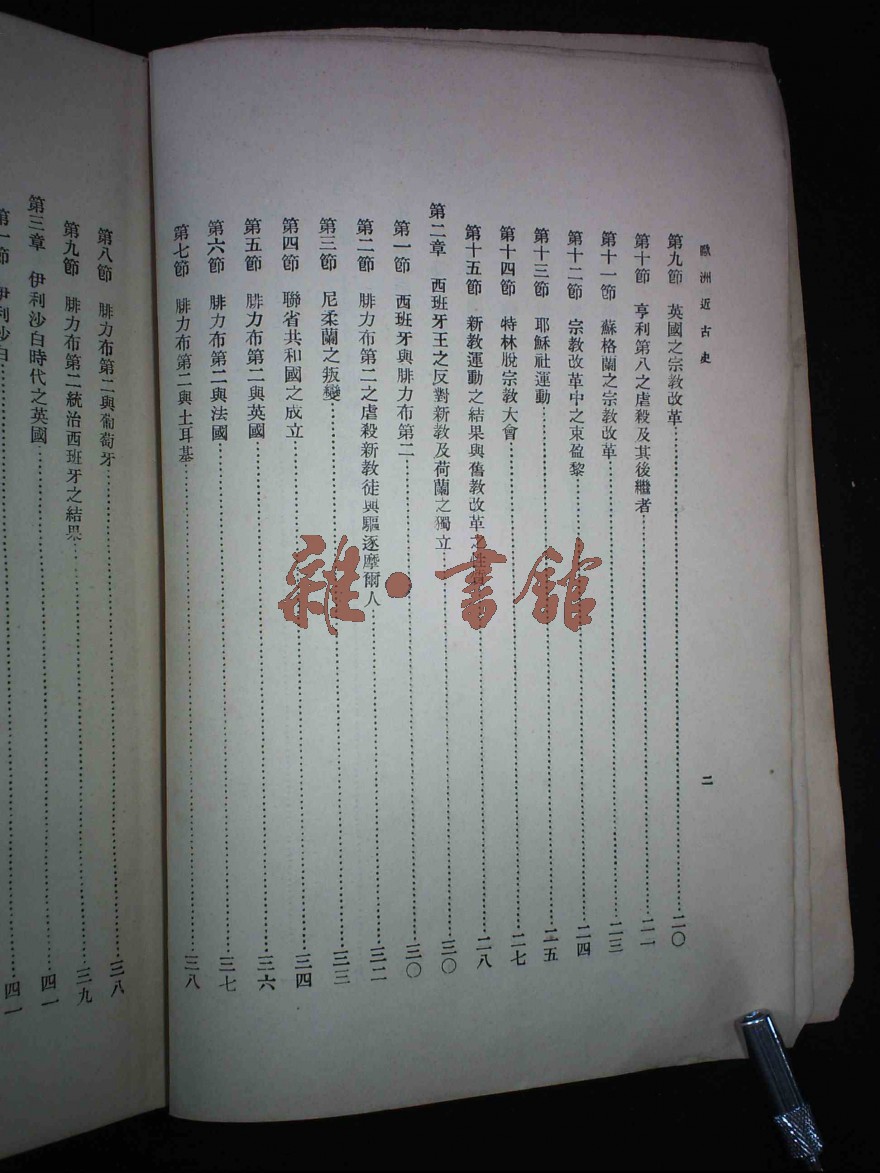 歐洲近古史
二
第九節　英國之宗教改革……二〇
第十節　亨利第八之虐殺及其後繼者……二一
第十一節　蘇格蘭之宗教改革……二三
第十二節　宗教改革中之束盈黎……二四
第十三節　耶穌社運動……二五
第十四節　特林脫宗教大會……二七
第十五節　新教運動之結果與舊教改革之……二八
第二章　西班牙王之反對新教及荷蘭之獨立……三〇
第一節　西班牙與腓力布第二……三〇
第二節　腓力布第二之虐殺新教徒與驅逐摩爾人……三二
第三節　尼柔蘭之叛變……三三
第四節　聯省共和國之成立……三四
第五節　腓力布第二與英國……三六
第六節　腓力布第二與法國……三七
第七節　腓力布第二與土耳基……三八
第八節　腓力布第二與葡萄牙……三八
第九節　腓力布第二統治西班牙之結果……三九
第三章　伊利沙白時代之英國……四一
第一節　伊利沙白……四一
雜·書館